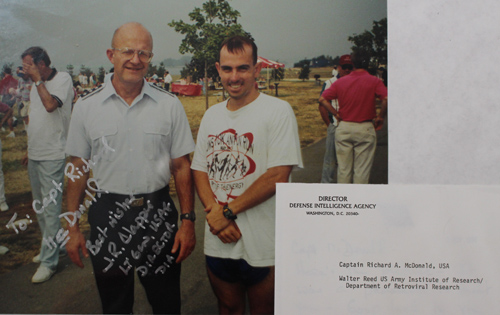 To Capt. Rich
McDonald
Best wishes
J.R. Clapper
Lt Gen, USAF
Director
DIA
DIRECTOR
DEFENSE INTELLIGENCE AGENCY
WASHINGTON, D.C. 20340-
Captain Richard A. McDonald, USA
Walter Reed US Army Institute of Research/
Department of Retroviral Research